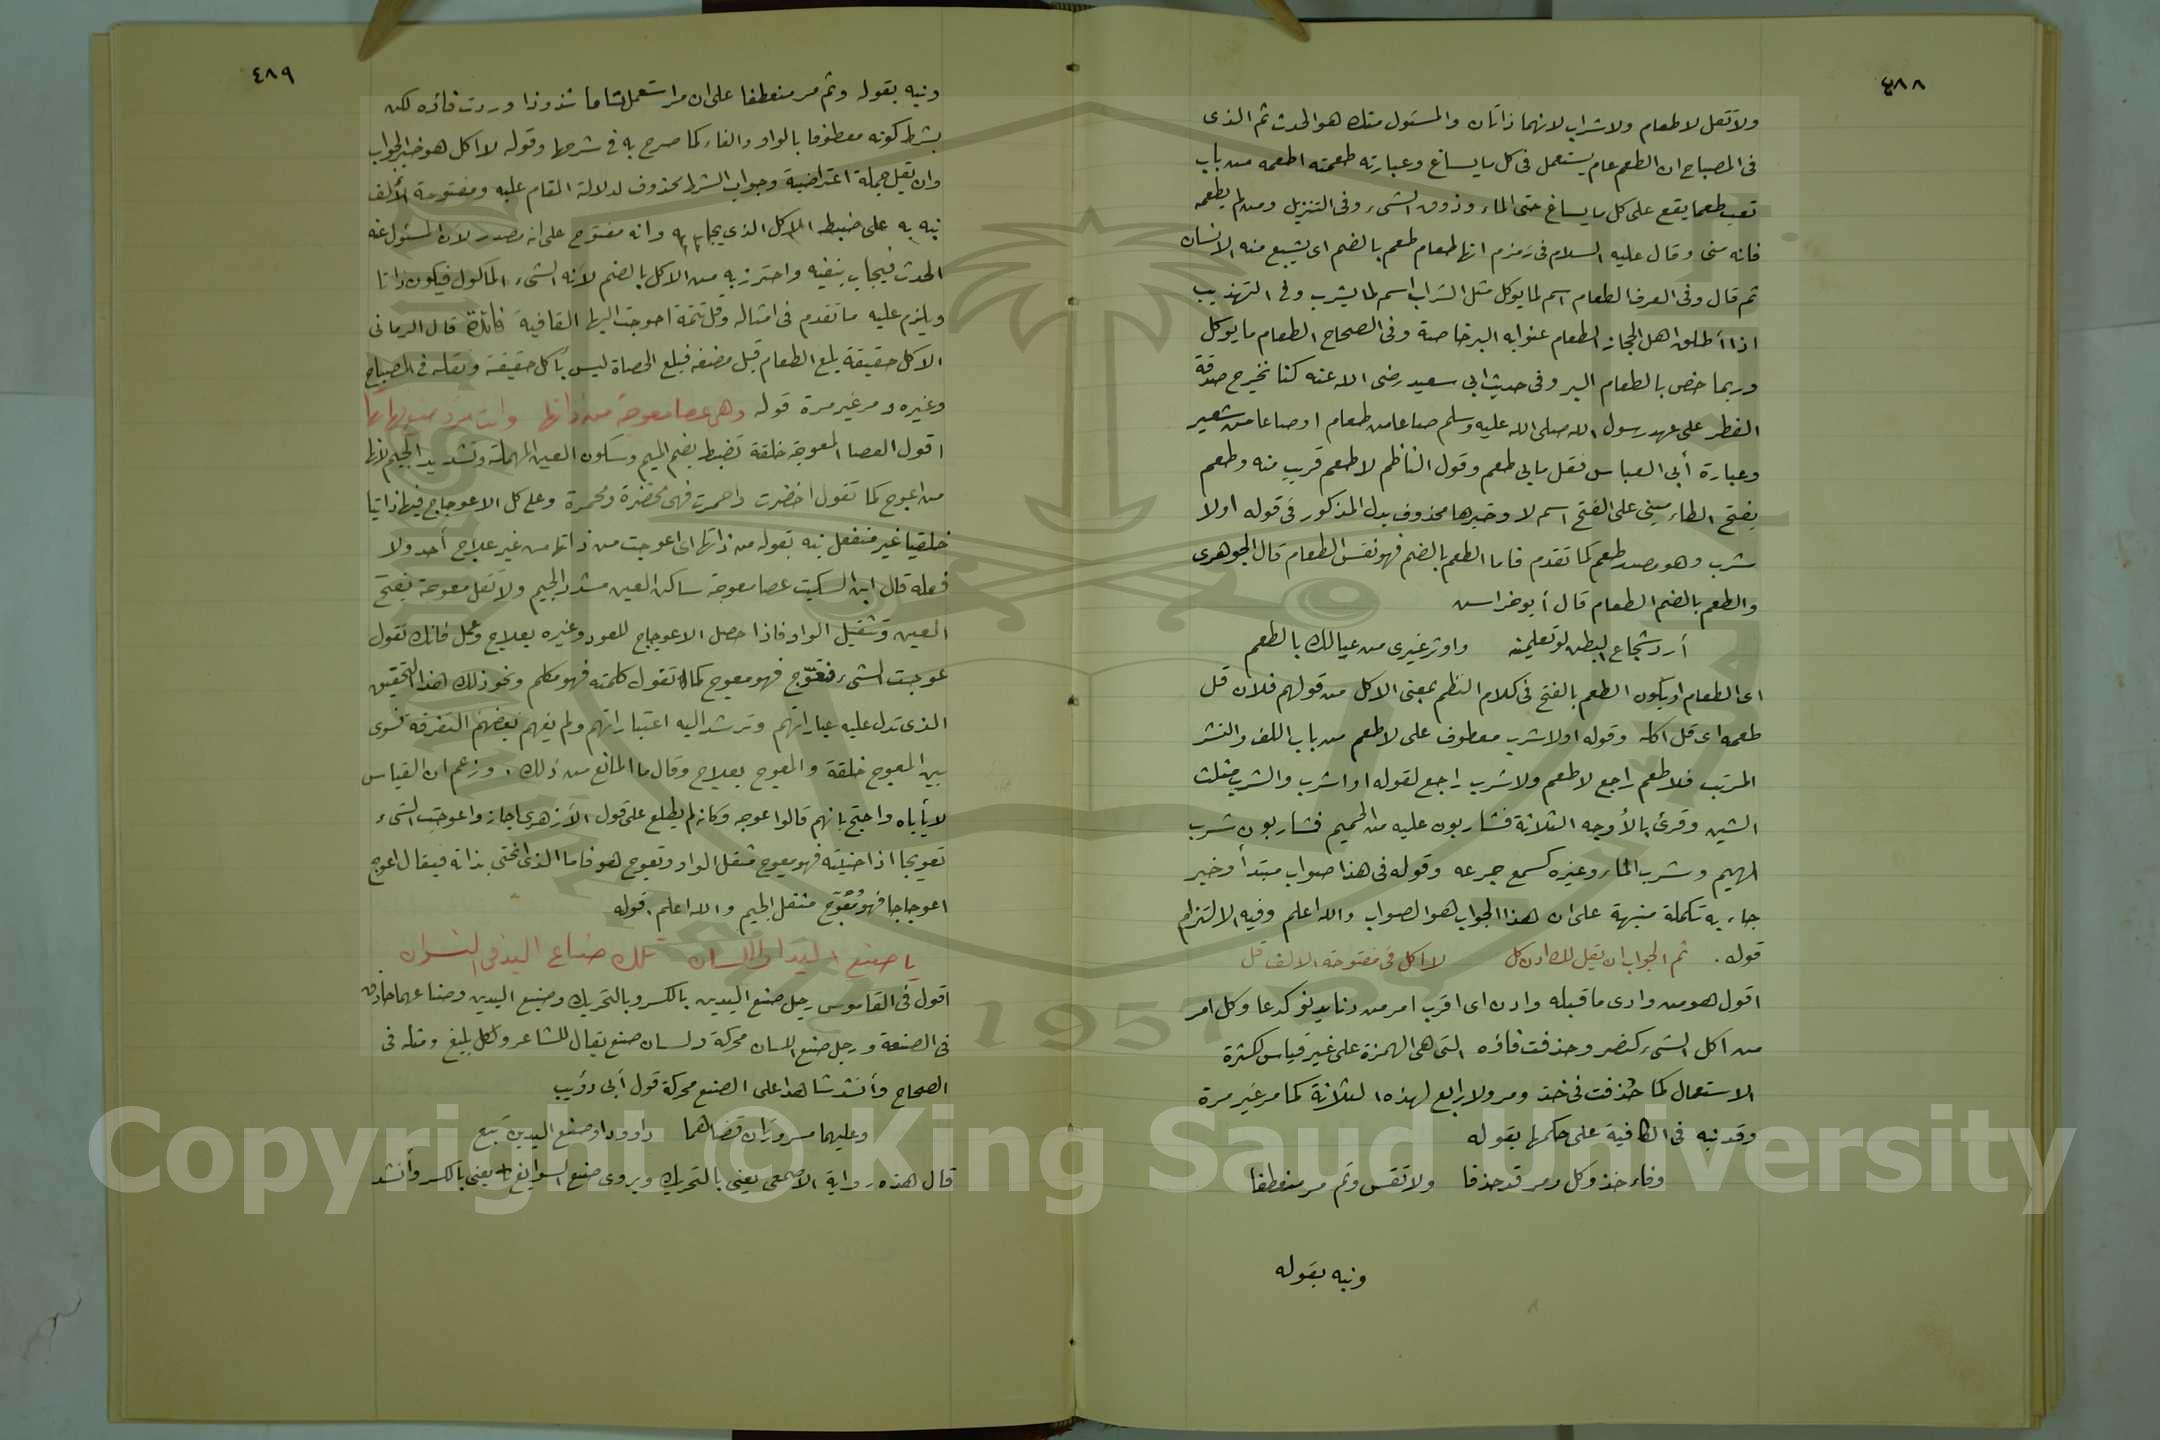 ٤٨٨
ولا تقل لا طعام ولا شراب لانهما ذاتان والمسئول منك هو الحدث ثم الذى
فى المصباح ان الطعم عام يستعمل فى كل ما يساغ وعبارته طعمته اطعمه من باب
تعب طعما يقع على كل ما يساغ حتى الماء وذوق الشىء وفى التنزيل ومن لم يطعمه
فانه منى وقال عليه السلام فى زمزم انها طعام طعم بالضم اى يشبع منه الانسان
ثم قال وفى العرف الطعام اسم لما يوكل مثل الشراب اسم لما يشرب وفى التهذيب
اذا أطلق اهل الحجاز الطعام عنوا به البر خاصة وفى الصحاح الطعام ما يوكل
وربما خص بالطعام البر وفى حديث ابى سعيد رضى الله عنه كنا نخرج صدقة
الفطر على عهد رسول الله صلى الله عليه وسلم صاعا من طعام او صاعا من شعير
وعبارة أبى العباس فقل ما بى طعم وقول الناظم لا طعم قريب منه وطعم
بفتح الطاء مبنى على الفتح اسم لا وخبرها محذوف بدل المذكور فى قوله اولا
شرب وهو مصدر طعم كما تقدم فاما الطعم بالضم فهو نفس الطعام قال الجوهرى
والطعم بالضم الطعام قال أبو خراس
أرد شجاع البطن لو تعلمينه واوثر غيرى من عيالك بالطعم
اى الطعام او يكون الطعم بالفتح فى كلام النظم بمعنى الاكل من قولهم فلان قل
طعمه اى قل اكله وقوله اولا شرب معطوف على لا طعم من باب اللف والنشر
المرتب فلا طعم راجع لا طعم ولا شرب راجع لقوله او اشرب والشرب مثلث
الشين وقرئ بالأوجه الثلاثة فشاربون عليه من الحميم فشاربون شرب
الهيم وشرب الماء وغيره كسمع جرعه وقوله فى هذا صواب مبتدأ وخبر
جاء به تكملة منبهة على ان هذا الجواب هو الصواب والله اعلم وفيه الالتزام
قوله . ثم الجواب ان يقيل لك ادن كل لا اكل فى مفتوحة الالف قل
اقول هو من وادى ما قبله وادن اى اقرب امر من دنا يدنو كدعا وكل امر
من اكل الشىء كنصر وحذفت فاؤه التى هى الهمزة على غير قياس لكثرة
الاستعمال كما حذفت فى خذ ومر ولا رابع لهذه الثلاثة كما مر غير مرة
وقد نبه فى الكافية على حكمها بقوله
وفاء خذ وكل ومر قد حذفا ولا تقس وثم مر منعطفا
ونبه بقوله
٤٨٩
ونبه بقوله وثم مر منعطفا على ان مر استعمل تاما شذوذا وردت فاؤه لكن
بشرط كونه معطوفا بالواو والفاء كما صرح به فى شرحها وقوله لا اكل هو خبر الجواب
وان يقيل جملة اعتراضية وجواب الشرط محذوف لدلالة المقام عليه ومفتوحة الألف
نبه به على ضبط الاكل الذى يجاب به وانه مفتوح على انه مصدر لان المسئول عنه
الحدث فيجاب بنفيه واحترز به من الاكل بالضم لانه الشىء المأكول فيكون ذاتا
ويلزم عليه ما تقدم فى امثاله وقل تتمة احوجت اليها القافية فائدة قال الرمانى
الاكل حقيقة بلع الطعام قبل مضغه فبلع الحصاة ليس بأكل حقيقة ونقله فى المصباح
وغيره ومر غير مرة قوله وهى عصا معوجة من ذاتها
اقول العصا المعوجة خلقة تضبط بضم الميم وسكون العين المهملة وتشديد الجيم لانها
من اعوج كما تقول اخضرت واحمرت فهى مخضرة ومحمرة وعلى كل الاعوجاج فيها ذاتيا
خلقيا غير منفعل نبه بقوله من ذاتها اى اعوجت من ذاتها من غير علاج أحد ولا
فعله قال ابن السكيت عصا معوجة ساكن العين مشدد الجيم ولا تقل معوجة بفتح
العين وتثقيل الواو فاذا حصل الاعوجاج للعود وغيره بعلاج وعمل فانك تقول
عوجت الشىء فتعوج فهو معوج كما تقول كلمته فهو مكلم ونحو ذلك هذا التحقيق
الذى تدل عليه عباراتهم وترشد اليه اعتباراتهم ولم يفهم بعضهم التفرقة فسوى
بين المعوج خلقة والمعوج بعلاج وقال ما المانع من ذلك وزعم ان القياس
لا يأباه واحتج بانهم قالوا عوجه وكانه لم يطلع على قول الأزهرى اجازوا عوجت الشىء
تعويجا اذا حنيته فهو معوج مثقل الواو وتعوج هو فاما الذى انحنى بذاته فيقال اعوج
اعوجاجا فهو مُعْوَجّ مثقل الجيم والله اعلم . قوله
يا صنع اليد او اللسان تلك صناع اليد فى النسوان
اقول فى القاموس رجل صنع اليدين بالكسر وبالتحريك وصنيع اليدين وصناعهما حاذق
فى الصنعة ورجل صنع اللسان محركة ولسان صنع يقال للشاعر ولكل بليغ ومثله فى
الصحاح وأنشد شاهدا على الصنع محركة قول أبى ذؤيب
وعليهما مسرودتان قضاهما داوود او صنع اليدين تبع
قال هذه رواية الاصمعى يعنى بالتحريك ويروى صنع السوابغ يعنى بالكسر وأنشد
1957
Copyright © King Saud University